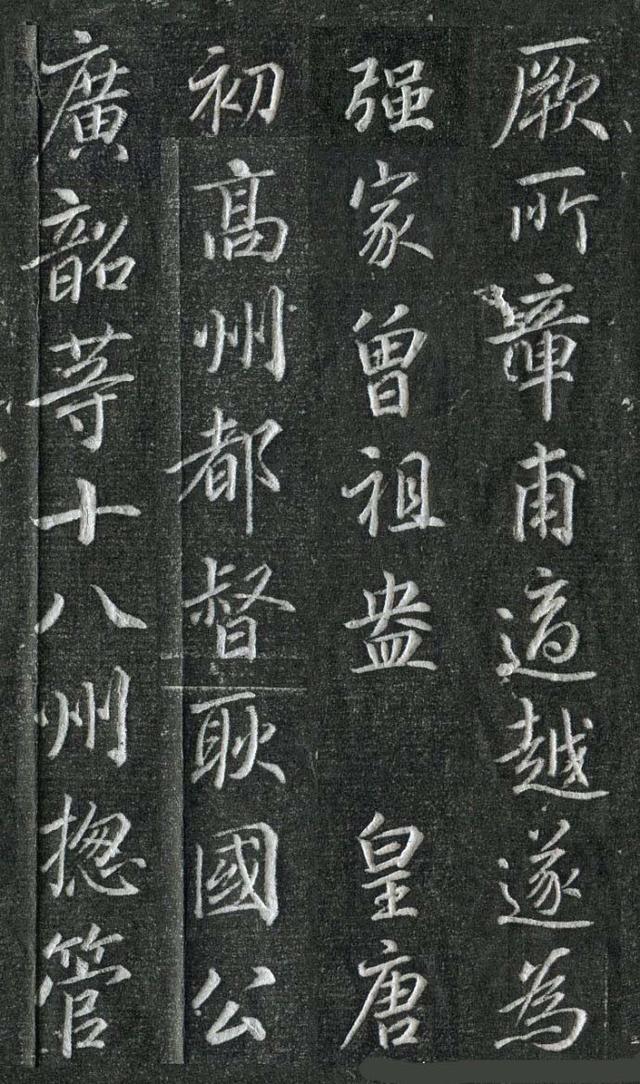 厥所章甫適越遂為
强家曾祖盎皇唐
初高州都督耿國公
廣韶等十八州摠管